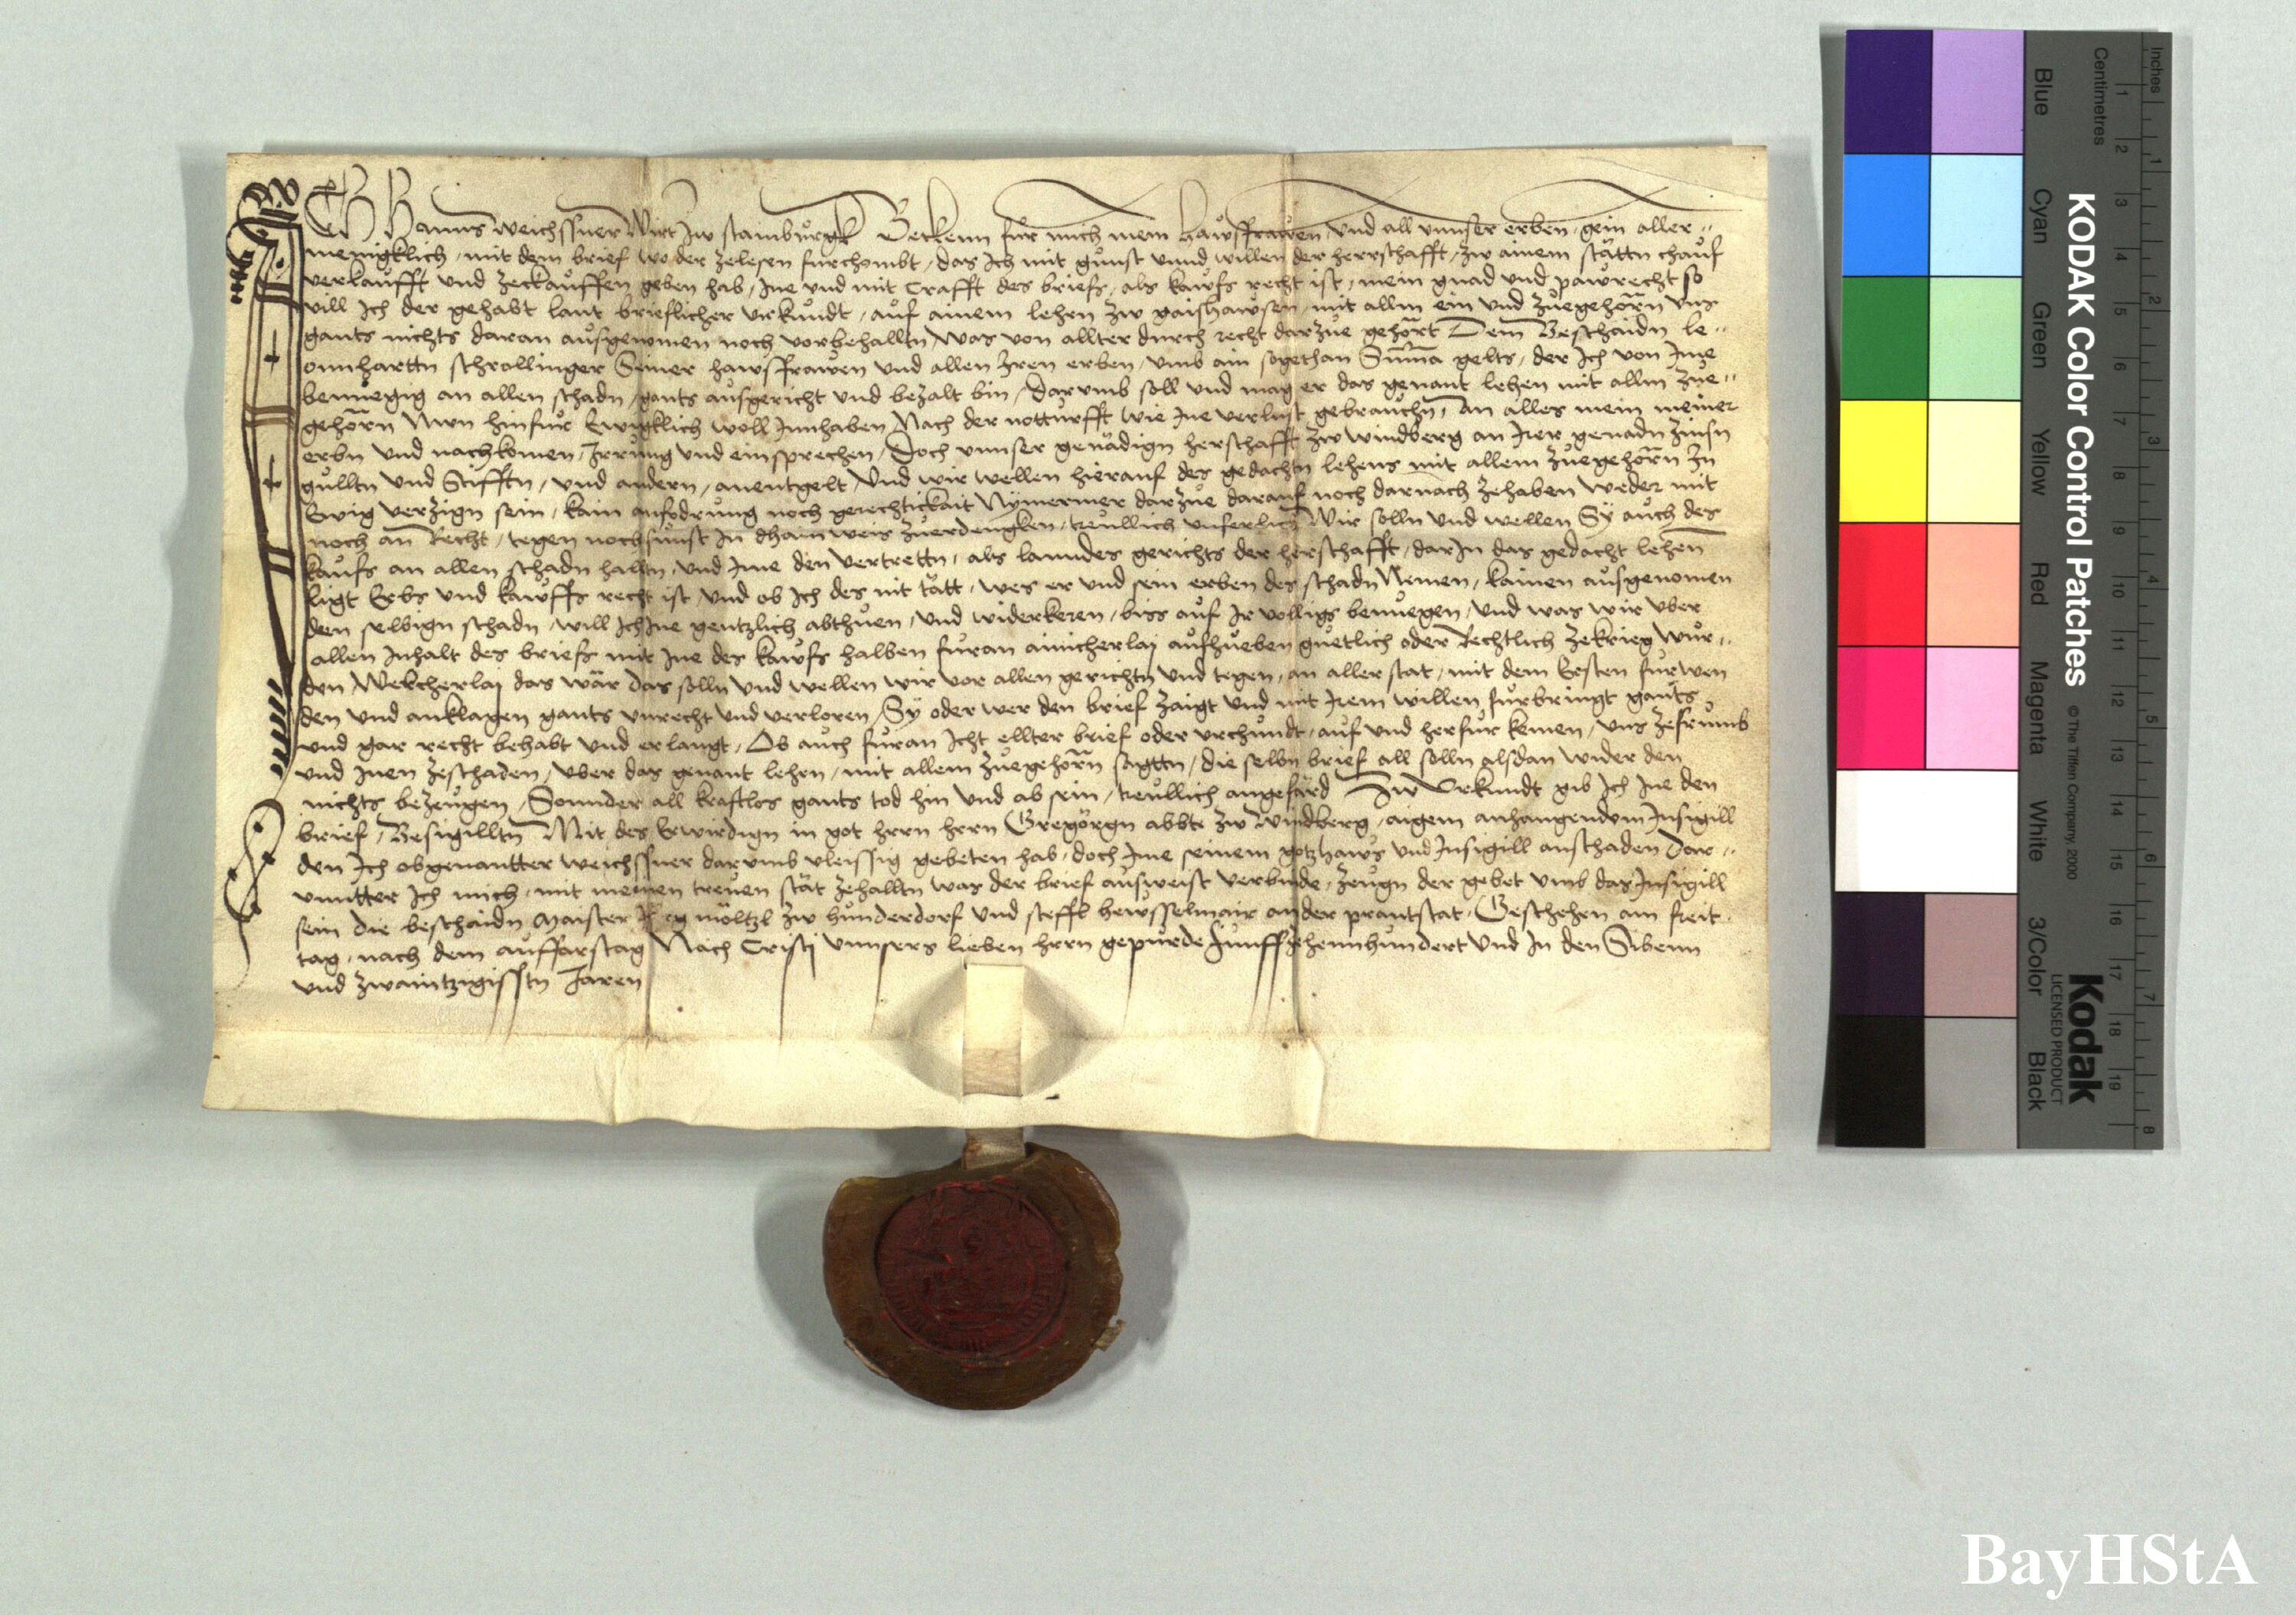 Ich Hanns weichssner Wirt Zw stainburgk Bekenn fur mich mein hawsfrawen und all unnser erben gein aller
menigklich mit dem brief wo der zelesen furchombt das Ich mit gunst unnd willen der herrschafft zw ainem stättn chauf
verkaufft und zekauffen geben hab Ine und mit Crafft des briefs als kawfs recht ist mein gnad und pawrecht so
vill Ich der gehabt laut brieflicher urkundt auf ainem lehen zw gaishawsen mit allm ein und zuegehorn uns
gants nichts daran ausgenomen noch vorbehalltn Was von allter durch recht darzue gehört Dem Beschaidn le
onnharttn schrollinger Seiner hawsfrawen und allen Iren erben umb ain sogethan Suma gelts der Ich von Ime
benuegig an allen schadn gants ausgericht und bezalt bin Darumb soll und mag er das genant lehen mit allm zue
gehörn Nun hinfur Ewigklich woll Innhaben Nach der notturfft wie Ine verlust gebrauchn An alles mein meiner
erbn und nachkomen Irrung und einsprechen Doch unnser genädign herschafft zw windberg an Irer genadn zinsn
gulltn und Stifftn und andern anentgelt Und wir wellen hierauf des gedachtn lehens mit allem zuegehorn In
Ewig verzign sein kain anfodrung noch gerechtickait Nymermer darzue darauf noch darnach zehaben weder mit
noch an Recht tegen noch sunst In dhain weis zuerdengken treullich ungeferlich Wir solln und wellen Sy auch des
kaufs an allen schadn halltn und Ime den vertrettn als lanndes gerichts der herschafft darIn das gedacht lehen
ligt Erbs und kawffs recht ist und ob Ich des nit tätt wes er und sein erben des schadn Nemen kainen ausgenomen
den selbign schadn will Ich Ine gentzlich abthuen und widerkeren biss auf Ir volligs benuegen und was wir uber
allen Inhalt des briefs mit Ine des kawfs halben furan ainicherlaj aufhueben guetlich oder Rechtlich zekrieg wur
den Welcherlaj das wär das solln und wellen wir vor allen gerichtn und tegen an aller stat mit dem Ersten furwen
den und anklagen gants unrecht und verloren Sy oder wer den brief zaigt und mit Irem willen furbringt gants
und gar recht behabt und erlangt Ob auch furan Icht ellter brief oder urchundt auf und herfur kemen uns zefrumb
und Inen zeschaden uber das genant lehen mit allem zuegehorn sagttn die selbn brief all solln alsdan wider den
nichts bezeugen Sonnder all kraftlos gants tod hin und ab sein treullich angefärd Zw Urkundt gib Ich Ine den
brief Besigilltn Mit des Erwirdign in got herrn herrn Gregorgn abbte zw windberg aigem anhangendem Insigill
den Ich obgenantter weichssner darumb vleissig gebeten hab doch Ime seinem gotzhaws und Insigill anschaden Dar
unntter Ich mich mit meinen treuen stät zehalltn was der brief ausweist verbinde zeugn der gebet umb das Insigill
sein die beschaidn Maister möltzl zw hunderdorf und steffl hewsselmair an der prantstat Geschehen am freit
tag nach dem auffarstag Nach Cristj unnsers lieben herrn gepurde Funffzehennhundert und In den Sibenn
und zwaintzigisstn Jaren
KODAK Color Control Patches
© The Tiffen Company, 2000
Kodak
LICENSED PRODUCT
Inches
Centimetres
Blue
Cyan
Green
Yellow
Red
Magenta
White
3/Color
Black
1 2 3 4 5 6 7 8 9 10 11 12 13 14 15 16 17 18 19
1 2 3 4 5 6 7 8
BayHStA